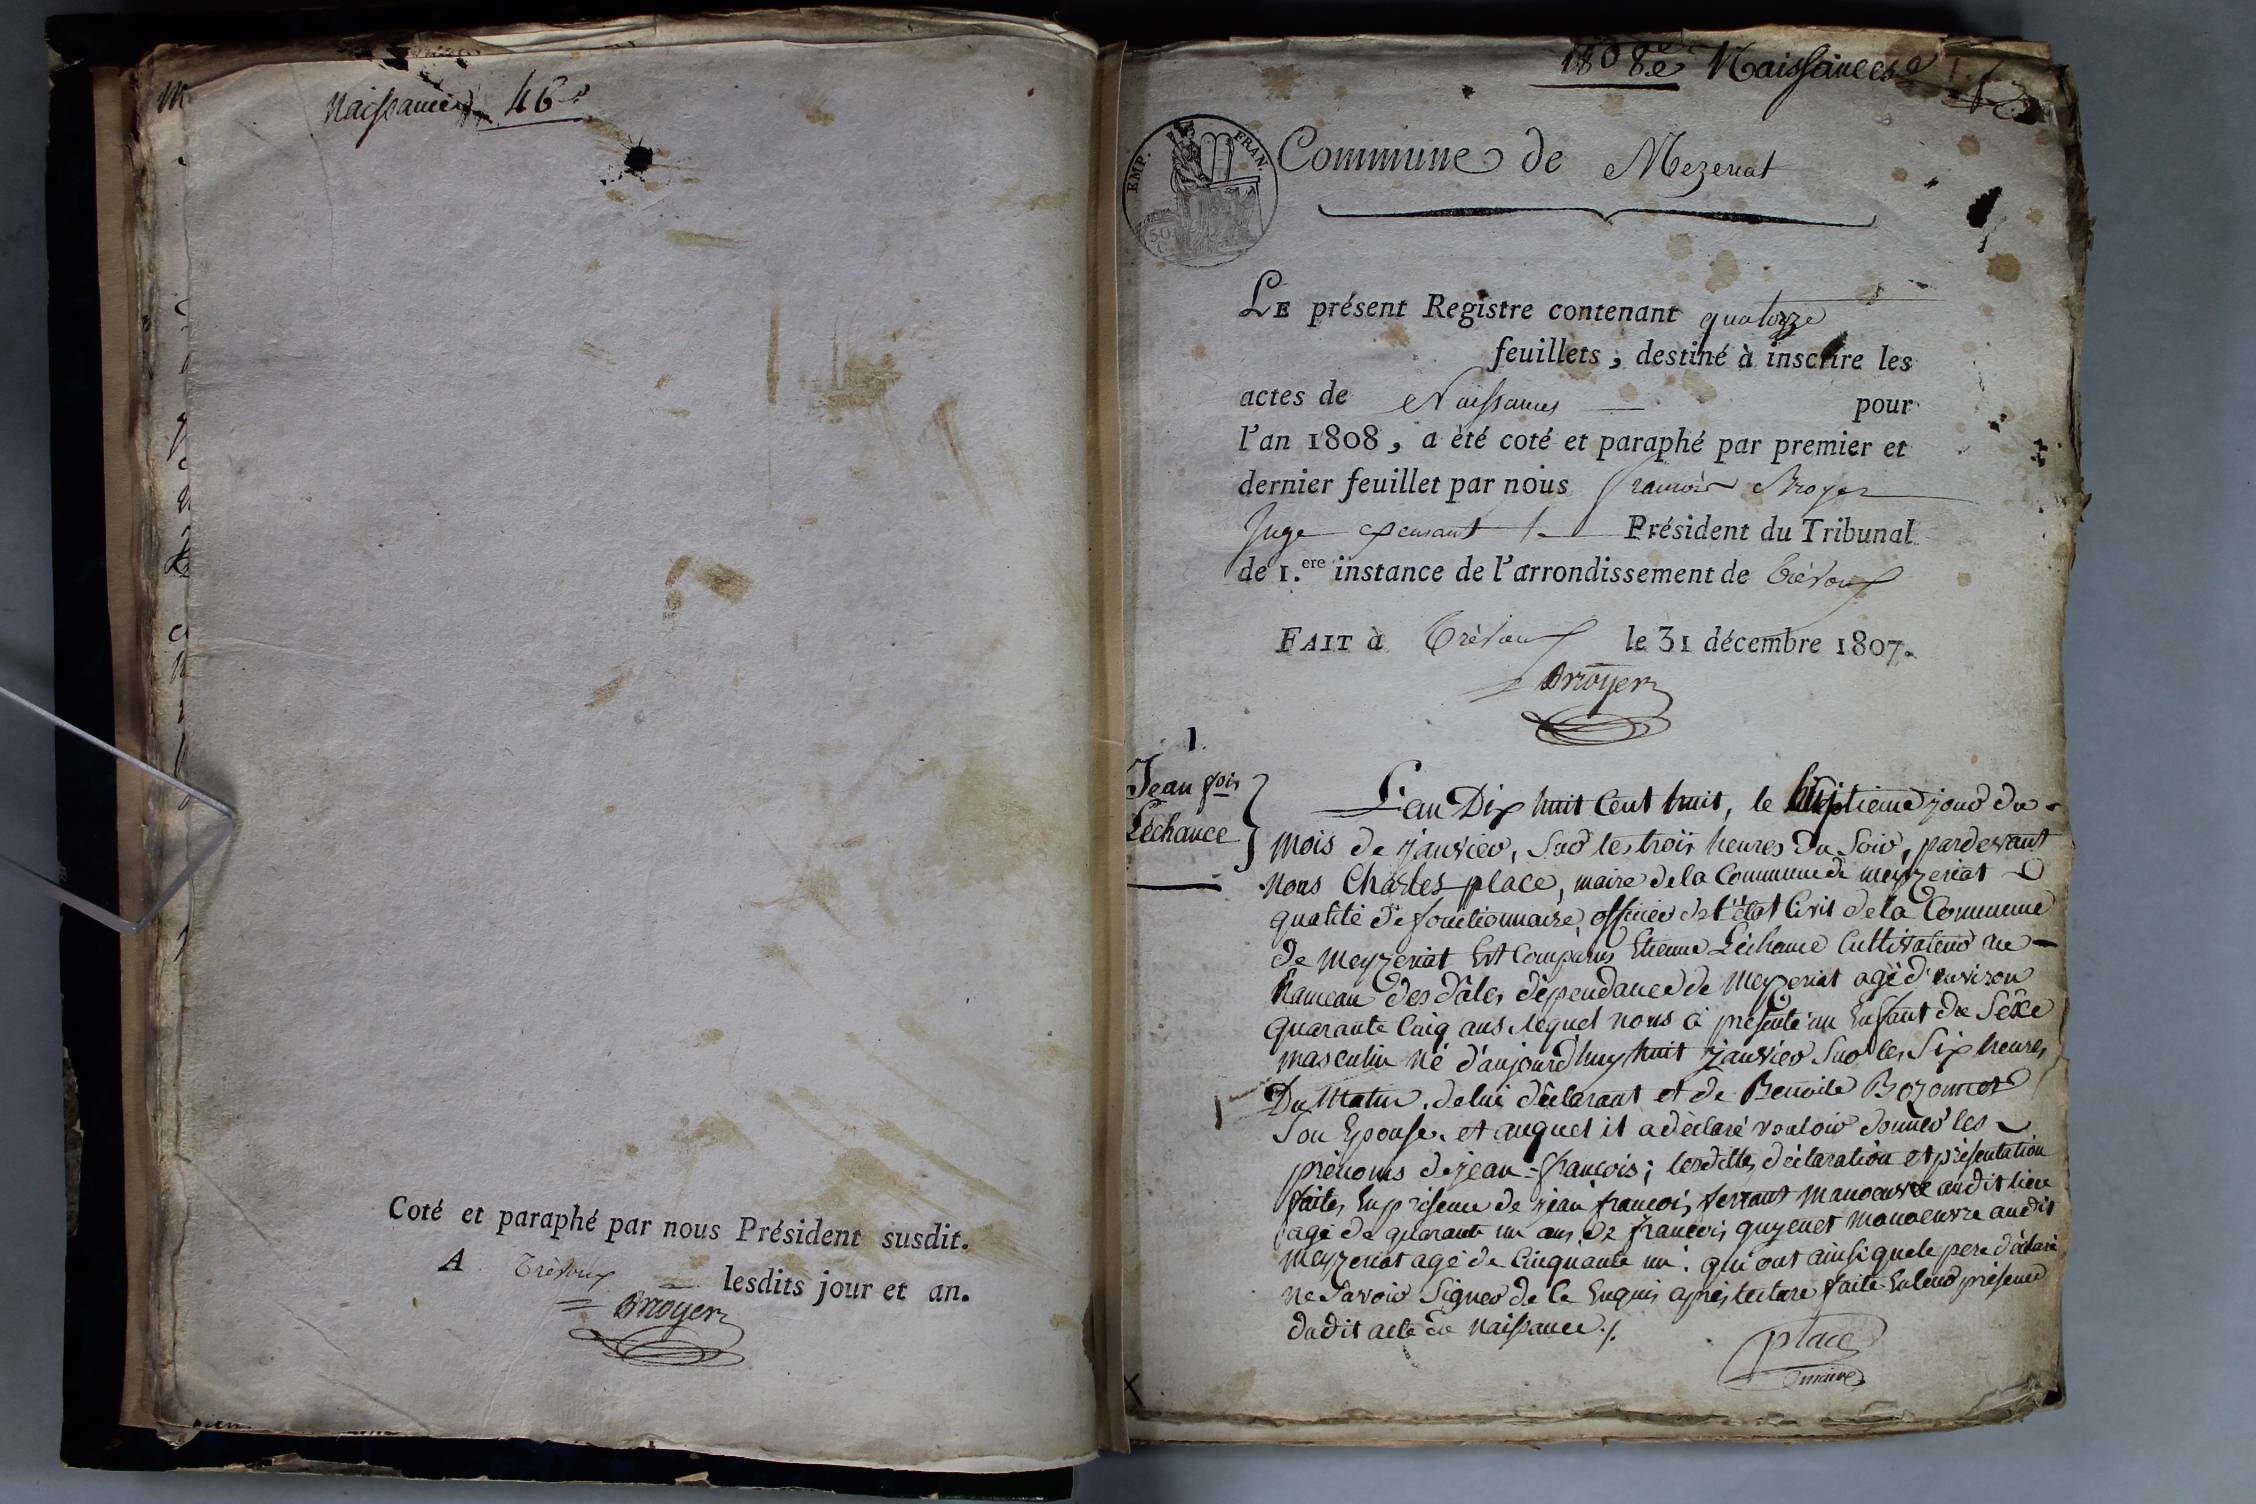 Naissances 46
Coté et paraphé par nous Président susdit.
A Trévoux lesdits jour et an.
Broyer
1808 Naissances
EMP. FRAN.
50
Commune de Mezeriat
LE présent Registre contenant quatorze
feuillets, destiné à inscrire les
actes de Naissances pour
l'an 1808, a été coté et paraphé par premier et
dernier feuillet par nous François Broyer
Juge Président du Tribunal
de 1.ere instance de l'arrondissement de Trévoux
FAIT à Trévoux le 31 décembre 1807.
Broyer
1.
Jean fois
Léchance
L'an Dix huit Cent huit, le jour du
mois de janvier, Sur les trois heures du Soir, pardevant
nous Charles place, maire de la Commune de meyzeriat
qualité de fonctionnaire officier de l'état Civil de la Commune
de meyzeriat Est Comparus Etienne Léchance Cultivateur au
hameau des dâles dépendance de Meyzeriat agé d'environ
quarante Cinq ans lequel nous à présenté un Enfant du Séxe
masculin né d'aujourd'huy huit janvier Sur les Six heures
Du Matin, de lui déclarant et de Benoite Bozonnet
Son Epouse, et auquel il a déclaré vouloir donner les
prénoms de jean-françois; lesdittes déclaration et présentation
faites En présence de jean françois ferrant manoeuvre audit lieu
agé de quarante un ans, de françois guyenet manoeuvre audit
Meyzeriat agé de Cinquante un: qui ont ainsi que le pere déclaré
ne Savoir Signer de Ce Enquis après lecture faite En leur présence
dudit acte de naissance ./.
place
maire